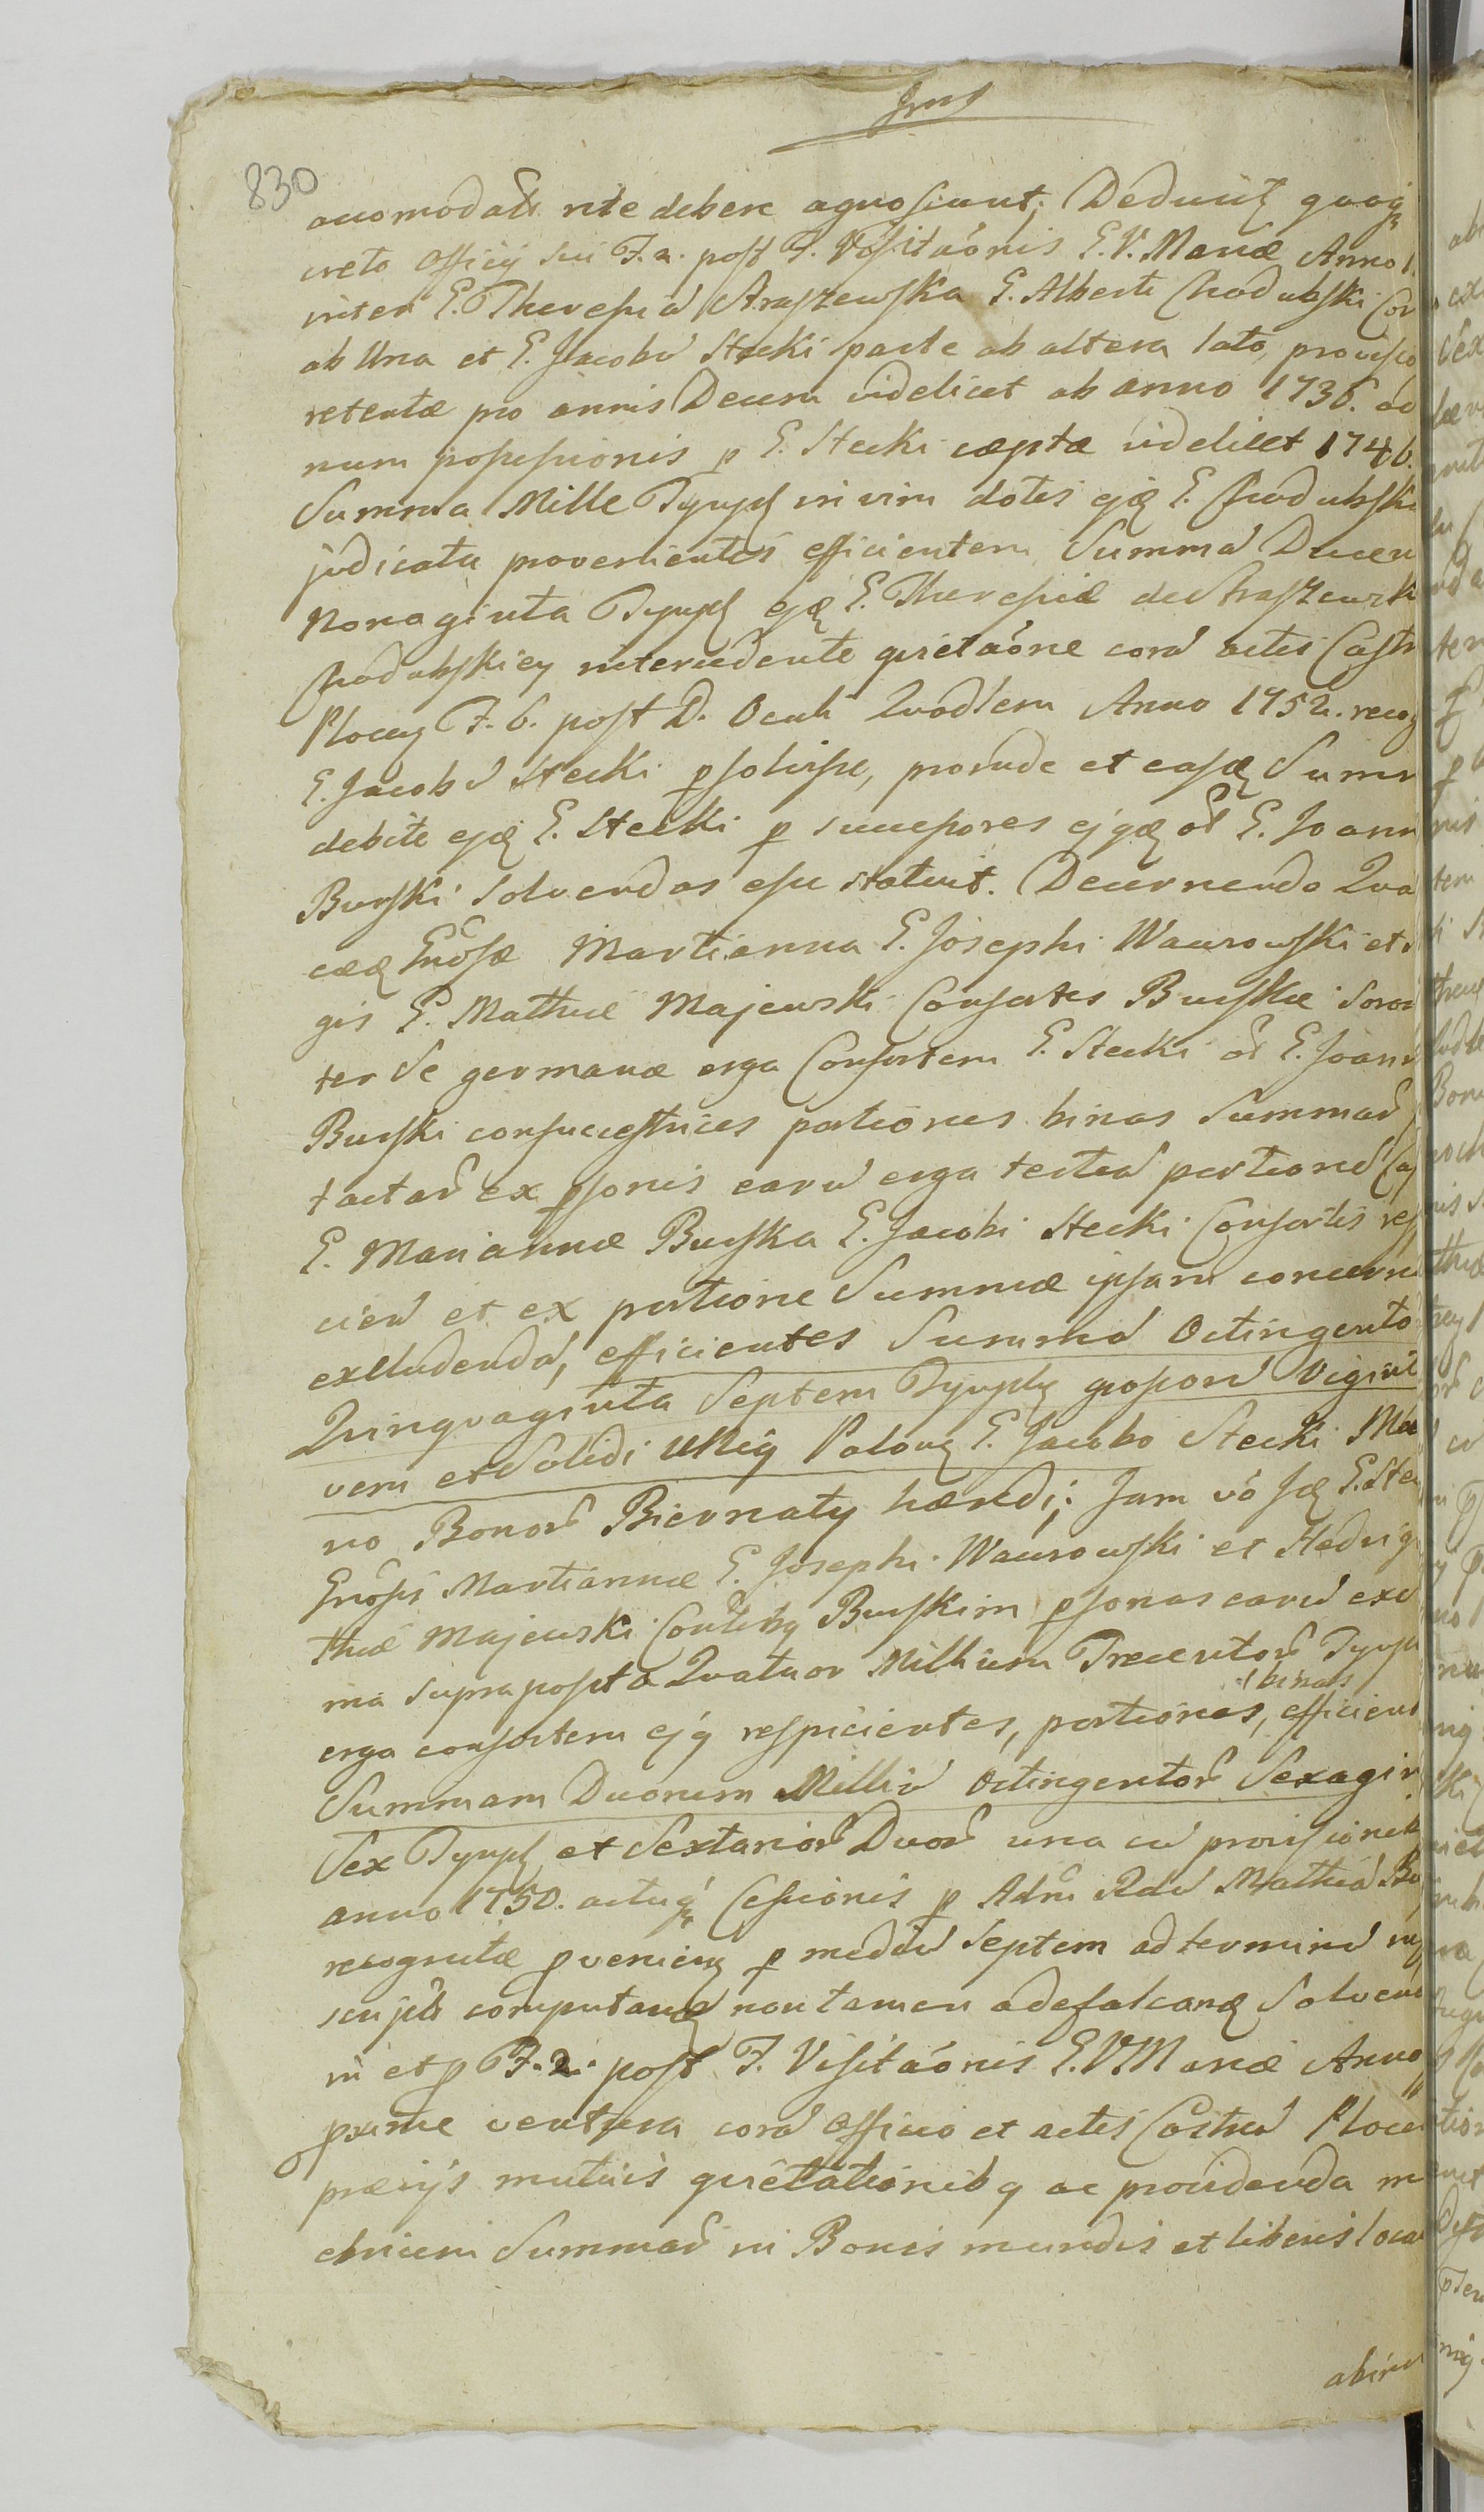 830
accomodatis rite debere agnoscunt; Deducit quoq
creto Officij sui F. 2. post F. Visitaónis E. V. Mariæ Anno
inter E. Theresia Straszewska E. Alberti Chodubski Con
ab Una et E. Jacobu Stecki parte ab altera lato, provisio
retentæ pro annis Decem videlicet ab anno 1736. ad
num possessionis p E. Stecki cæptæ videlicet 1746.
Summa Mille Tynph in vim dotis ejq E. Chodubski
judicata provenientes efficientem Summa Ducen
Nonaginta Tynph ejq E. Theresiæ de Straszewsk
Chodubskiey intercedente qvietaóne cora actis Castr
Plocen F. 6. post D. Oculi Qvadlem Anno 1752. recog
E. Jacobu Stecki psolvisse, proinde et easq Summ
debite ejq E. Stecki p successores ejqq od E. Joann
Burski solvendas esse statuit. Decernendo Qva
cæq Gnosæ Martianna E. Josephi Wawrowski et
gis E. Mathiæ Majewski Consortes Burskie Soror
ter Se germanæ erga Consortem E. Stecki od E. Joann
Burski consuccestrices portiones binas Summar
tactar ex psonis earu erga tertia portione
E. Mariannæ Burska E. Jacobi Stecki Consortis resp
cien et ex portione Summæ ipsam concerne
excludenda, efficientes Summa Octingento
Qvinqvaginta Septem Tynph grossor Vigint
vem et Solidi unig Polony E. Jacobo Stecki Mo
no Bonor Biernaty hæredi; Jam vó Jq E. Ste
Gnosis Martiannæ E. Josephi Wawrowski et Hedvig
thiæ Majewski Contibq Burskim psonas earu exc
ma supraposita Qvatuor Millium Trecentor Tynph
erga consortem ejq respicientes, portiones, binas efficien
Summam Duorum Milliu Octingentor Sexagin
Sex Tynph et Sextarior Duor una cu provisionib
anno 1750. actuq Cessionis p Adm Rdu Mathia Bu
recognitæ pvenien p mediu Septem ad terminu in
scriptis computand non tamen adefalcand Solven
ni et p F. 2. post F. Visitaónis E. V M ariæ Anno
pxime ventura cora Officio et actis Castren Plocen
prævijs mutuis qvietationibq ac providenda in
ebricem Summar in Bonis mundis et liberis loca